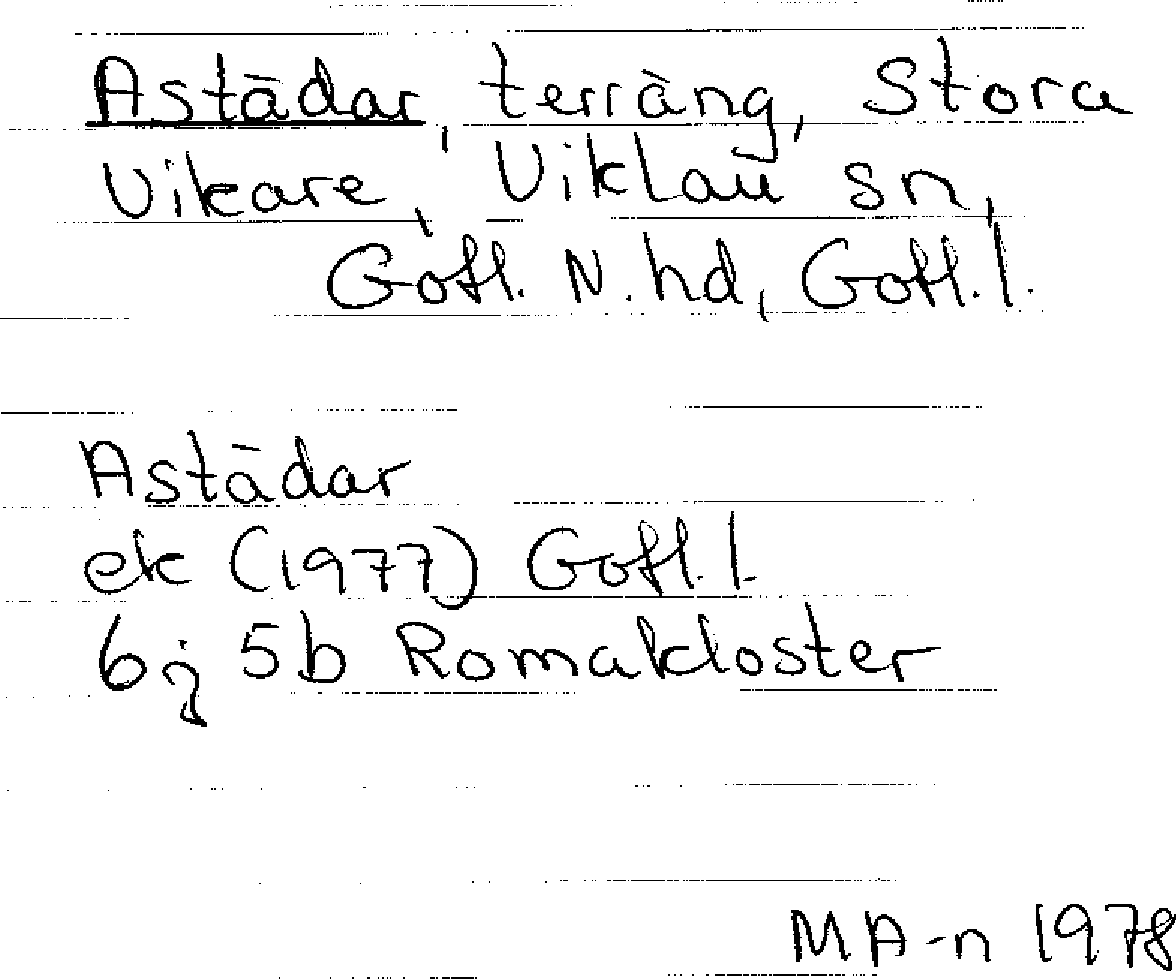 Astädar, terräng, Stora
Vikare, Viklau sn,
Gotl. N. hd, Gotl. l.
Astädar
ek (1977) Gotl. l.
6j 5b Romakloster
MA-n 1978